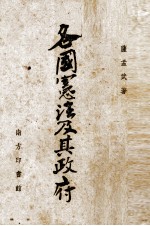 薩孟武著
各國憲法及其政府
南方印書館